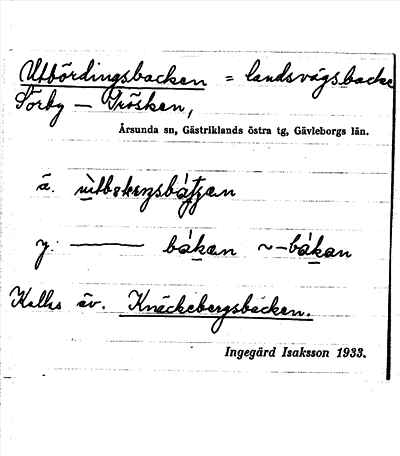 Utbördingsbacken = landsvägsbacke
Sörby – Trösken,
Årsunda sn, Gästriklands östra tg, Gävleborgs län.
ä.
y: —— bákan ~–bákan
Kallas äv. Knäckebergsbacken.
Ingegärd Isaksson 1933.